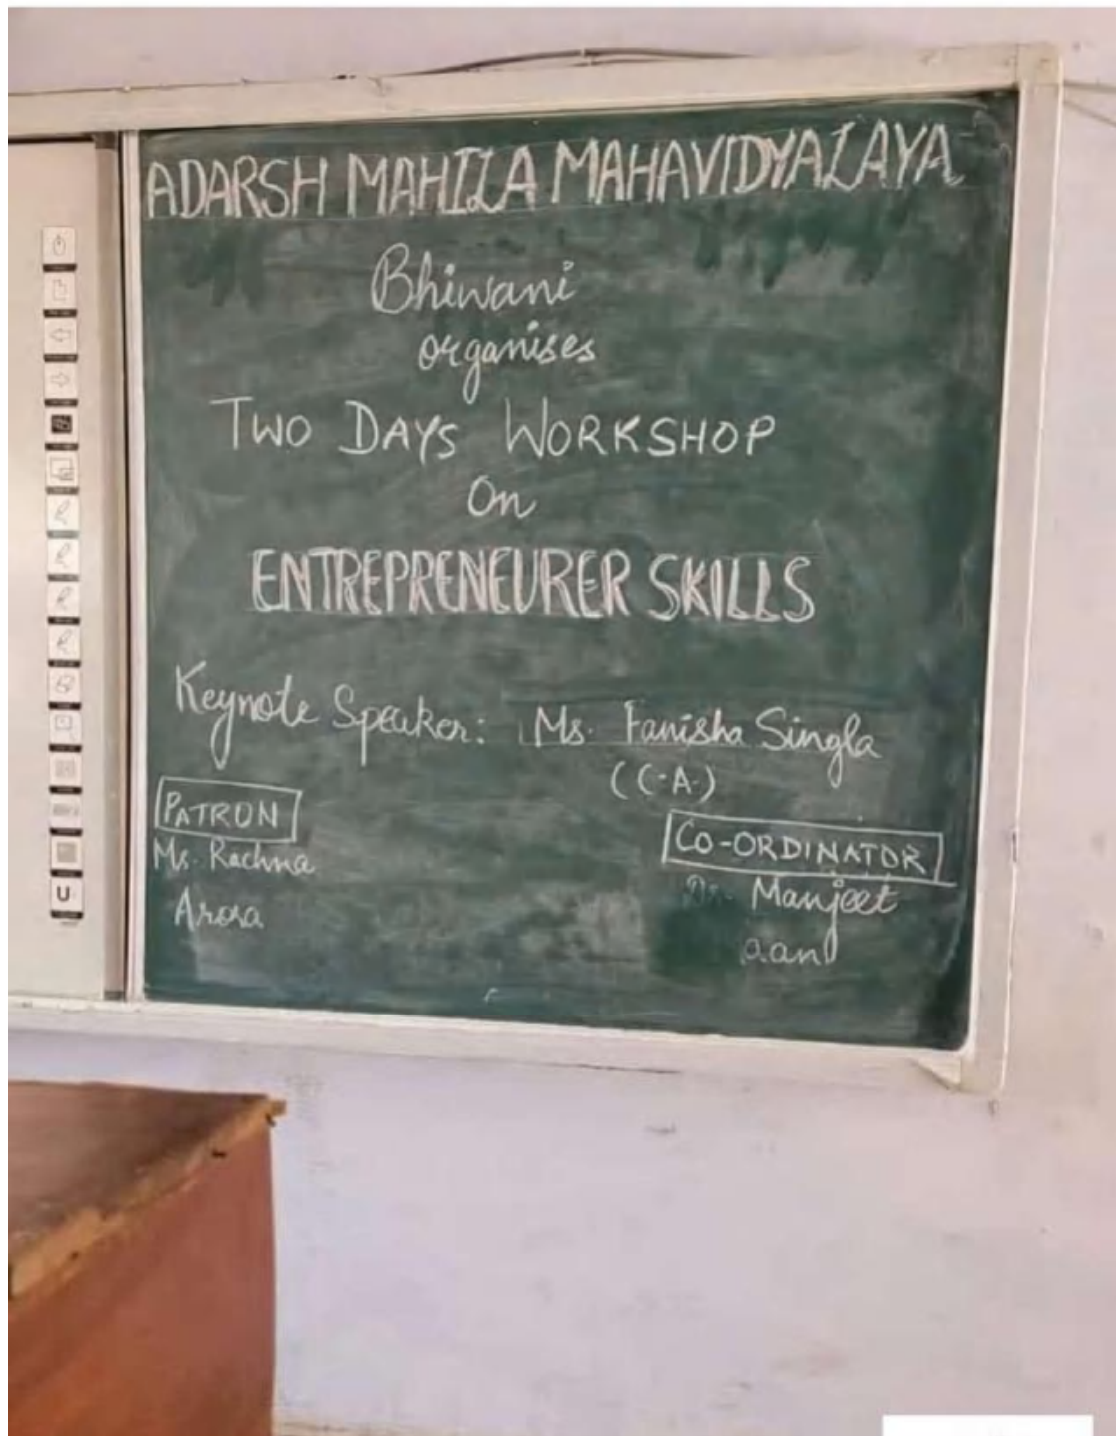 ADARSH MAHILA MAHAVIDYALAYA
Bhiwani
organises
TWO DAYS WORKSHOP
On
ENTREPRENEURER SKILLS
Keynote Speaker: Ms. Fanisha Singla
(C.A.)
PATRON
Ms. Rachna
Arora
CO-ORDINATOR
Dr. Manjeet
U